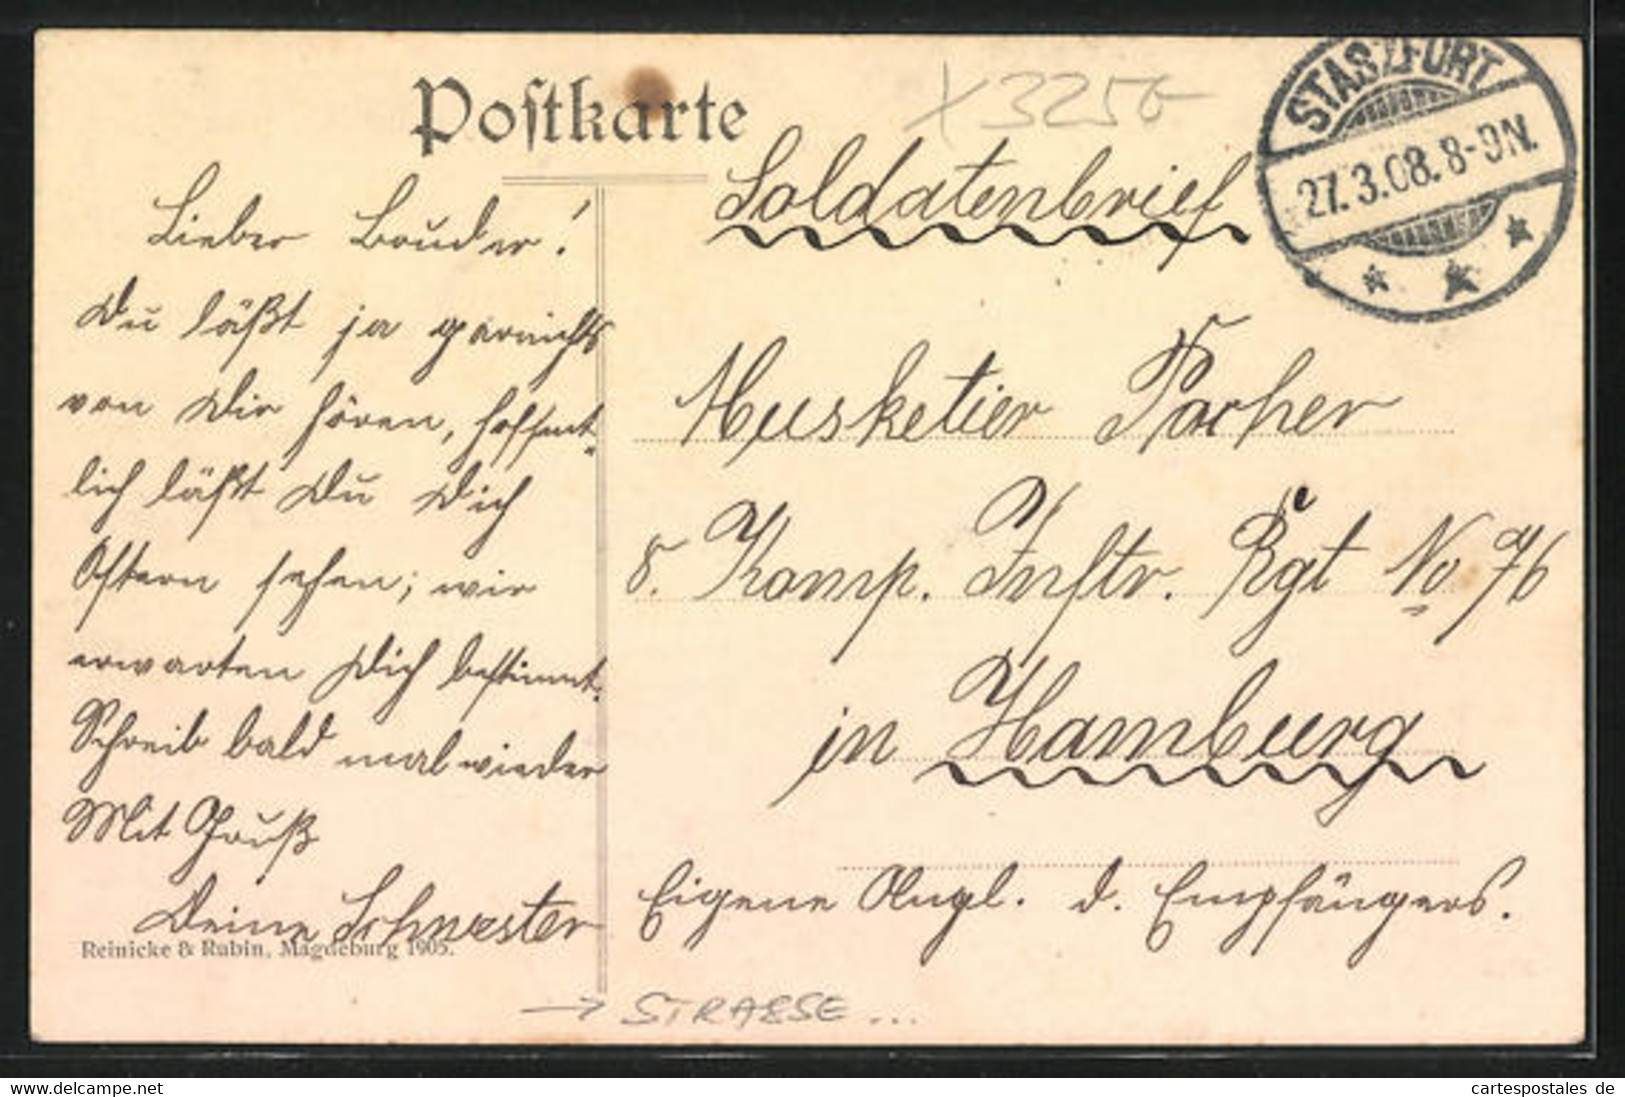 Postkarte
X3256
Soldatenbrief
STASZFURT
27.3.08. 8-9N.
Lieber Bruder!
Du läßt ja garnichts
von Dir hören, hoffent-
lich läßt Du Dich
Ostern sehen; wir
erwarten Dich bestimmt.
Schreib bald mal wieder
Mit Gruß
Deine Schwester
Musketier
8. Komp. Inftr. Rgt No 76
in Hamburg
Eigene Angl. d. Empfängers.
Reinicke & Rubin, Magdeburg 1905.
→ STRASSE ...
delcampe.net
cartespostales de